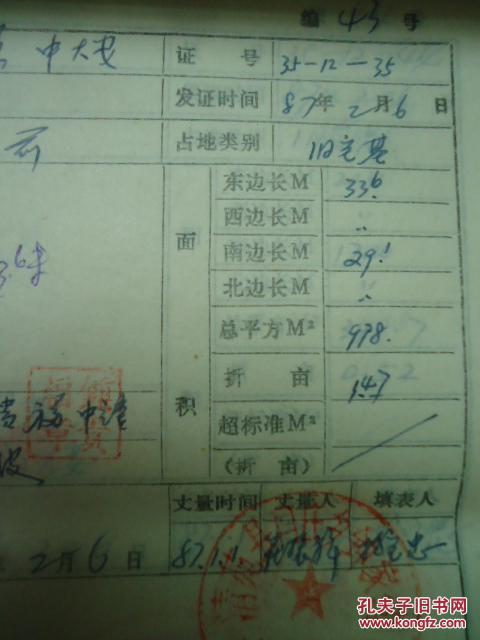 编 43 号
中大戈 证号 35-12-35
发证时间 87年2月6日
占地类别 旧宅基
面积
东边长M 33.6
西边长M 〃
36米 南边长M 29.1
北边长M 〃
总平方M² 978.
折亩 1.47
超标准M²
(折亩)
申请
丈量时间 丈量人 填表人
2月6日 87.1.1
孔夫子旧书网
www.kongfz.com